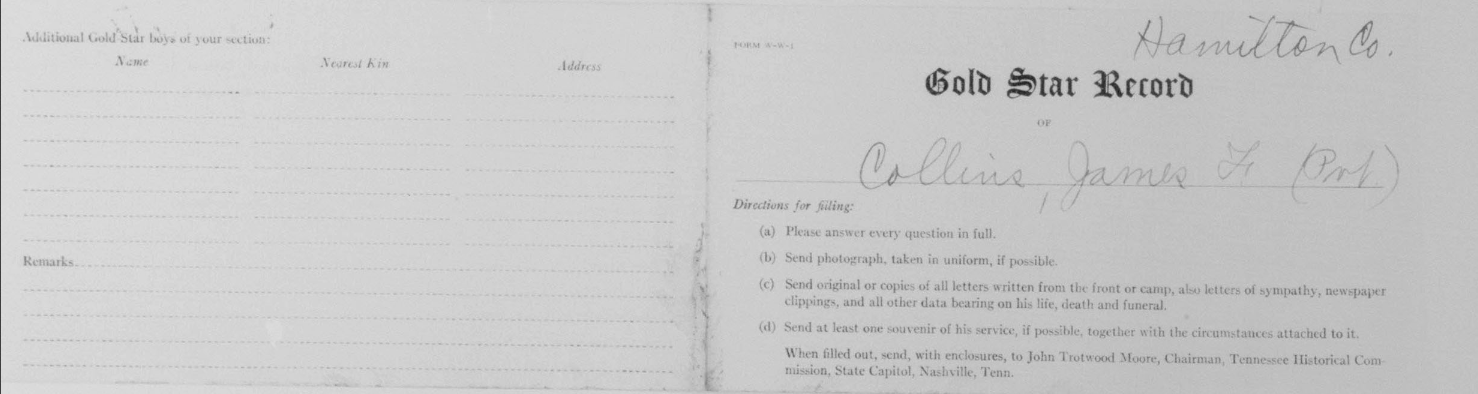 Additional Gold Star boys of your section:
Name Nearest Kin Address
Remarks
FORM W-W-1
Hamilton Co.
Gold Star Record
OF
Collins, James F. (Pvt)
Directions for filling:
(a) Please answer every question in full.
(b) Send photograph, taken in uniform, if possible.
(c) Send original or copies of all letters written from the front or camp, also letters of sympathy, newspaper
clippings, and all other data bearing on his life, death and funeral.
(d) Send at least one souvenir of his service, if possible, together with the circumstances attached to it.
When filled out, send, with enclosures, to John Trotwood Moore, Chairman, Tennessee Historical Com-
mission, State Capitol, Nashville, Tenn.